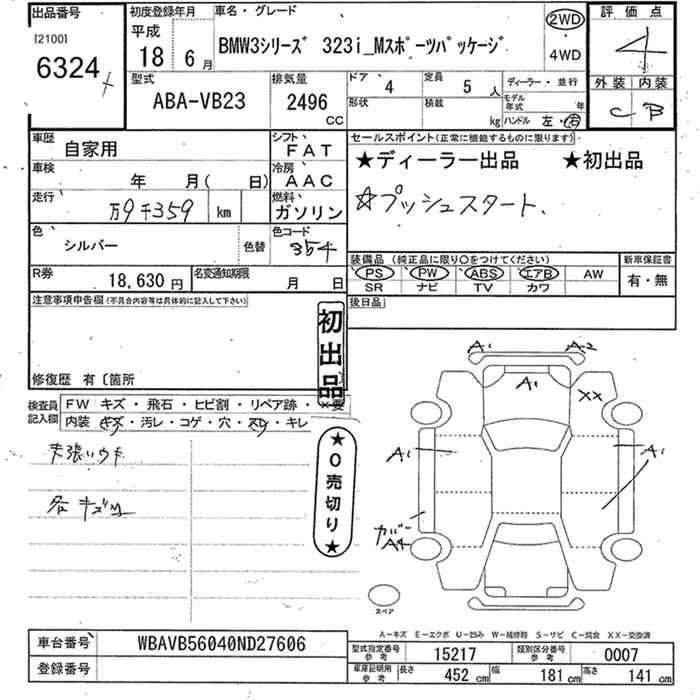 出品番号
[2100]
6324
初度登録年月
平成
18 6月
車名・グレード
BMW3シリーズ 323i_Mスポーツパッケージ
2WD
4WD
評価点
4
外装 内装
C B
型式
ABA-VB23
排気量
2496
CC
ドア
4
定員
5 人
形状
積載
kg
ディーラー・並行
モデル年式
年
ハンドル 左・右
車歴
自家用
シフト
FAT
車検
年 月( 日)
冷房
AAC
走行
9千359
km
燃料
ガソリン
色
シルバー
色替
色コード
354
R券
18,630 円
名変通知期限
月 日
セールスポイント(正常に機能するものに限ります)
★ディーラー出品 ★初出品
☆プッシュスタート、
装備品 (純正品に限り○をつけてください)
PS PW ABS エアB AW
SR ナビ TV カワ
新車保証書
有・無
後日品
注意事項申告欄(不具合内容等は具体的に記入して下さい)
初出品
修復歴 有〔箇所
検査員記入欄
FW キズ・飛石・ヒビ割・リペア跡・×要
内装 キズ・汚レ・コゲ・穴・スレ・キレ
★0売切り★
各キズ
A1 A2
A1
XX
A1
A1
カバー
A4
スペア
A-キズ E-エクボ U-凹み W-補修跡 S-サビ C-腐食 XX-交換済
車台番号
WBAVB56040ND27606
登録番号
型式指定番号
参考
15217
類別区分番号
参考
0007
車庫証明用
参考
長さ
452 cm
幅
181 cm
高さ
141 cm